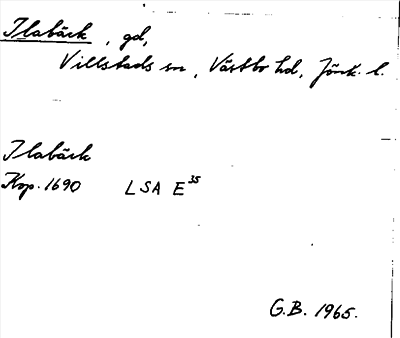 Ilabäck, gd,
Villstads sn, Västbo hd, Jönk. l.
Ilabäck
Kop. 1690 LSA E 35
G.B. 1965.